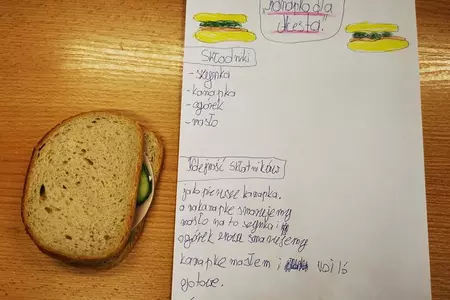 "Kanapka dla
Składniki
- szynka
- kanapka
- ogórek
- masło
Kolejność składników
jako pierwsze kanapka.
a na kanapkę smarujemy
masło na to szynka i
ogórek znowu smarujemy
kanapkę masłem i voi là
gotowe.